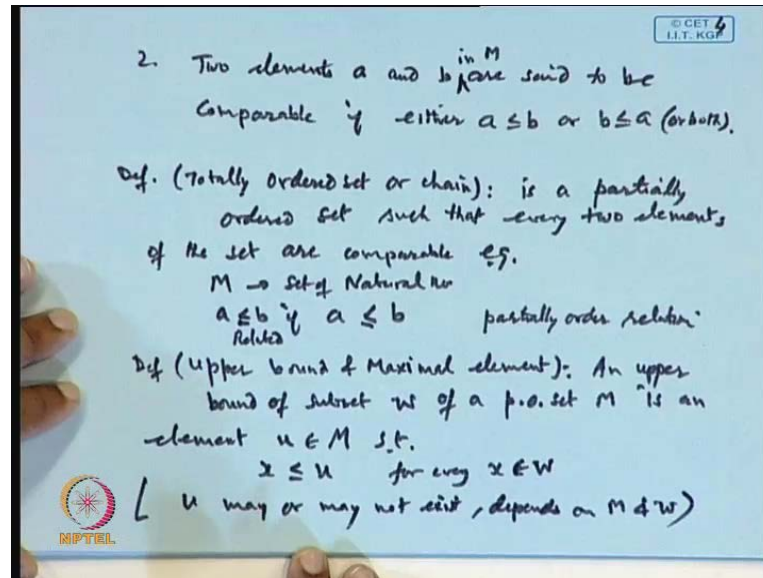 © CET 4
I.I.T. KGP
in M
2. Two elements a and b ∧ are said to be
Comparable if either a ≤ b or b ≤ a (or both).
Def. (Totally Ordered set or chain): is a partially
ordered set such that every two elements
of the set are comparable eg.
M → Set of Natural no
a ≤ b if a ≤ b partially order relation.
Related
Def (Upper bound & Maximal element): An upper
bound of subset W of a p.o. set M is an
element u ∈ M s.t.
x ≤ u for every x ∈ W
[ u may or may not exist, depends on M & W)
NPTEL